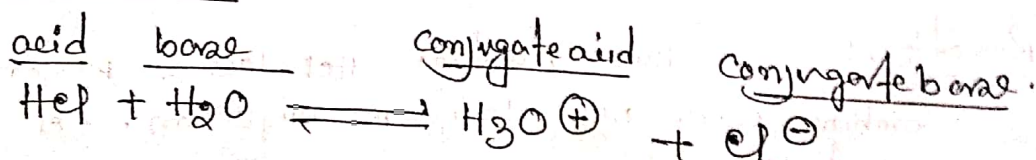 acid base conjugate acid conjugate base.
HCl + H₂O ⇌ H₃O⊕ + Cl⊖